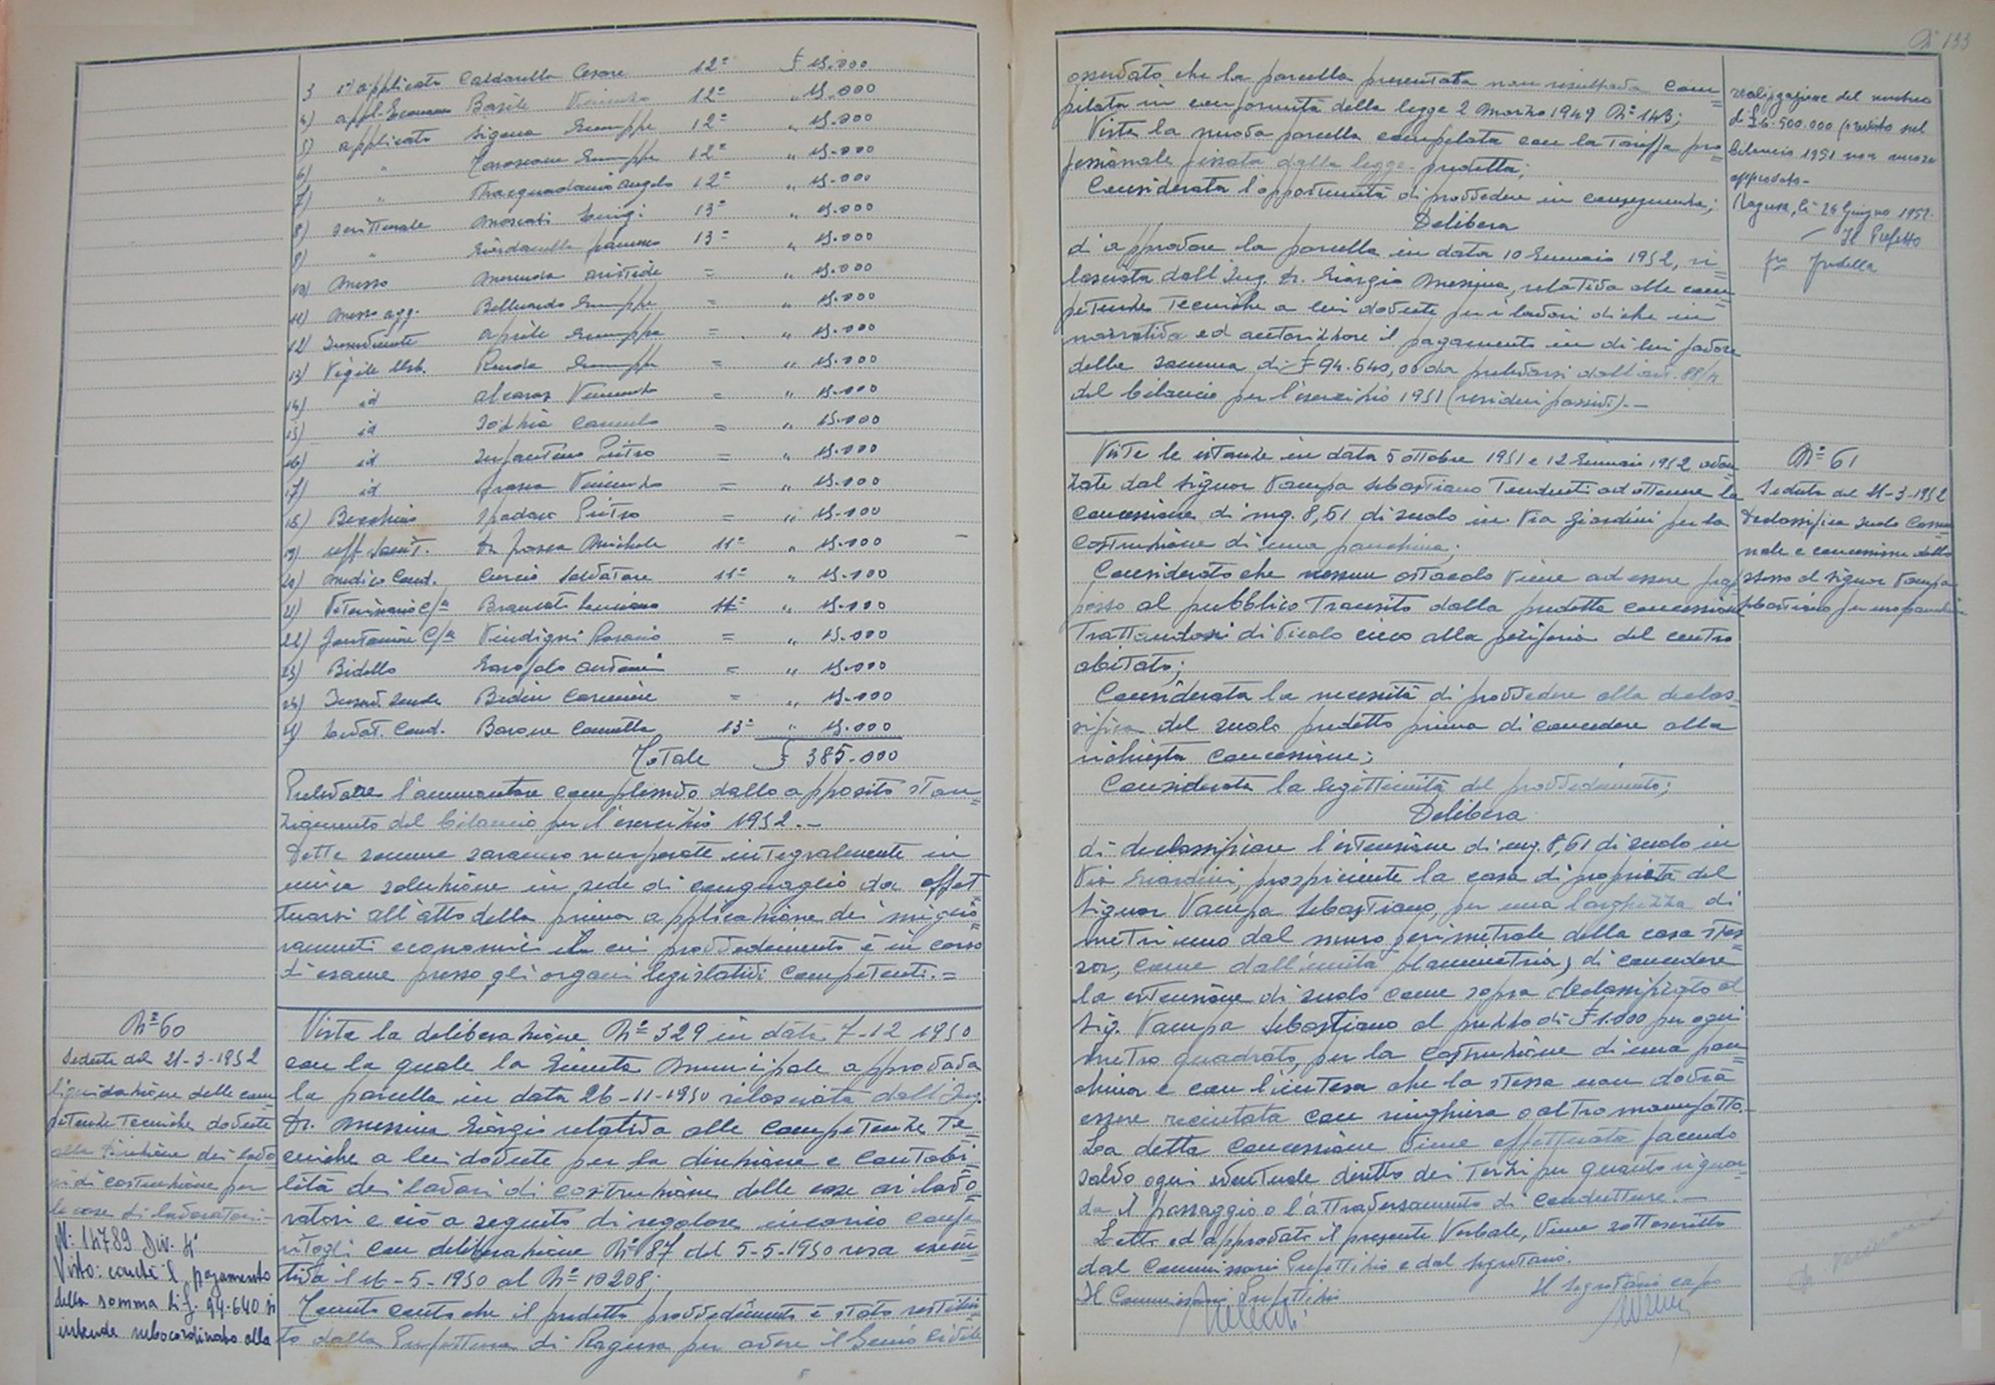 3 1° applicato Caldarella Cesare 12° £ 15.000
4) appl. Economo Basile Vincenzo 12° " 15.000
5) applicato Sigona Giuseppe 12° " 15.000
6) " Giuseppe 12° " 15.000
7) " Angelo 12° " 15.000
8) scritturale Moscati Luigi 13° " 15.000
9) " 13° " 15.000
10) Messo Aristide = " 15.000
11) Messo agg. Belluardo Giuseppe = " 15.000
12) Inserviente Aprile Giuseppe = " 15.000
13) Vigile Urb. Renda Giuseppe = " 15.000
14) id Alcaraz Vincenzo = " 15.000
15) id Carmelo = " 15.000
16) id Infantino Pietro = " 15.000
17) id Vincenzo = " 15.000
18) Becchino Spadaro Pietro = " 15.000
19) Uff. Sanit. Dr. Michele 11° " 15.000
20) Medico Cond. Curcio Salvatore 11° " 15.000
21) Veterinario C/le Brancati 11° " 15.000
22) Fontaniere C/le Vindigni Rosario = " 15.000
23) Bidello Garofalo Antonio = " 15.000
24) Carmine = " 15.000
25) Levat. Cond. Barone Concetta 13° " 15.000
Totale £ 385.000
Prelevare l'ammontare complessivo dallo apposito stan=
ziamento del bilancio per l'esercizio 1952.-
Dette somme saranno recuperate integralmente in
unica soluzione in sede di conguaglio da effet
tuarsi all'atto della prima applicazione dei miglio=
ramenti economici il cui provvedimento è in corso
d'esame presso gli organi legislativi competenti.=
N° 60
Seduta del 21-3-1952
liquidazione delle com
petenze tecniche dovute
alla direzione dei lavo
ri di costruzione per
le case di lavoratori.-
N. 14789 Div. 4ª
Visto: con che il pagamento
della somma di £. 94.640 si
intende subordinato alla
Vista la deliberazione N° 329 in data 7-12 1950
con la quale la Giunta Municipale approvava
la parcella in data 26-11-1950 rilasciata dall'Ing.
Dr. Messina Giorgio relativa alle competenze te=
cniche a lui dovute per la direzione e contabi=
lità dei lavori di costruzione delle case ai lavo=
ratori e ciò a seguito di regolare incarico confe=
ritogli con deliberazione N° 87 del 5-5-1950 resa esecu=
tiva il 16-5-1950 al N° 10208;
Tenuto conto che il predetto provvedimento è stato restitui=
to dalla Prefettura di Ragusa per avere il Genio Civile
N° 133
osservato che la parcella presentata non risultava com=
pilata in conformità della legge 2 Marzo 1949 N° 143;
Vista la nuova parcella compilata con la tariffa pro=
fessionale fissata dalla legge predetta;
Considerata l'opportunità di provvedere in conseguenza;
Delibera
d'approvare la parcella in data 10 Gennaio 1952, ri=
lasciata dall'Ing. Dr. Giorgio Messina, relativa alle com=
petenze tecniche a lui dovute per i lavori di che in
narrativa ed autorizzare il pagamento in di lui favore
della somma di £ 94.640,00 da prelevarsi dall'art. 88/
del bilancio per l'esercizio 1951 (residui passivi).-
realizzazione del mutuo
di £ 6.500.000 previsto nel
bilancio 1951 non ancora
approvato.-
Ragusa, li 26 Giugno 1952
Il Prefetto
Viste le istanze in data 5 ottobre 1951 e 12 Gennaio 1952 avan
zate dal signor Vampa Sebastiano tendenti ad ottenere la
concessione di mq. 8,61 di suolo in Via Giardini per la
costruzione di una panchina;
Considerato che nessun ostacolo viene ad essere frap=
posto al pubblico transito dalla predetta concessione
trattandosi di vicolo cieco alla periferia del centro
abitato;
Considerata la necessità di provvedere alla declas=
sifica del suolo predetto prima di concedere alla
richiesta concessione;
Considerata la legittimità del provvedimento;
Delibera
di declassificare l'estensione di mq. 8,61 di suolo in
Via Giardini, prospiciente la casa di proprietà del
Signor Vampa Sebastiano, per una larghezza di
metri uno dal muro perimetrale della casa stes=
sa, come dall'unita planimetria; di concedere
la estensione di suolo come sopra declassificato al
Sig. Vampa Sebastiano al prezzo di £ 1.000 per ogni
metro quadrato, per la costruzione di una pan
china e con l'intesa che la stessa non dovrà
essere recintata con ringhiera o altro manufatto.-
La detta concessione viene effettuata facendo
salvo ogni eventuale diritto dei terzi per quanto riguar=
da il passaggio o l'attraversamento di condutture.-
Letto ed approvato il presente Verbale, viene sottoscritto
dal Commissario Prefettizio e dal Segretario.
Il Commissario Prefettizio Il Segretario capo
N° 61
Seduta del 21-3-1952
Declassifica suolo Comu
nale e concessione dello
stesso al signor Vampa
Sebastiano per uso panchina